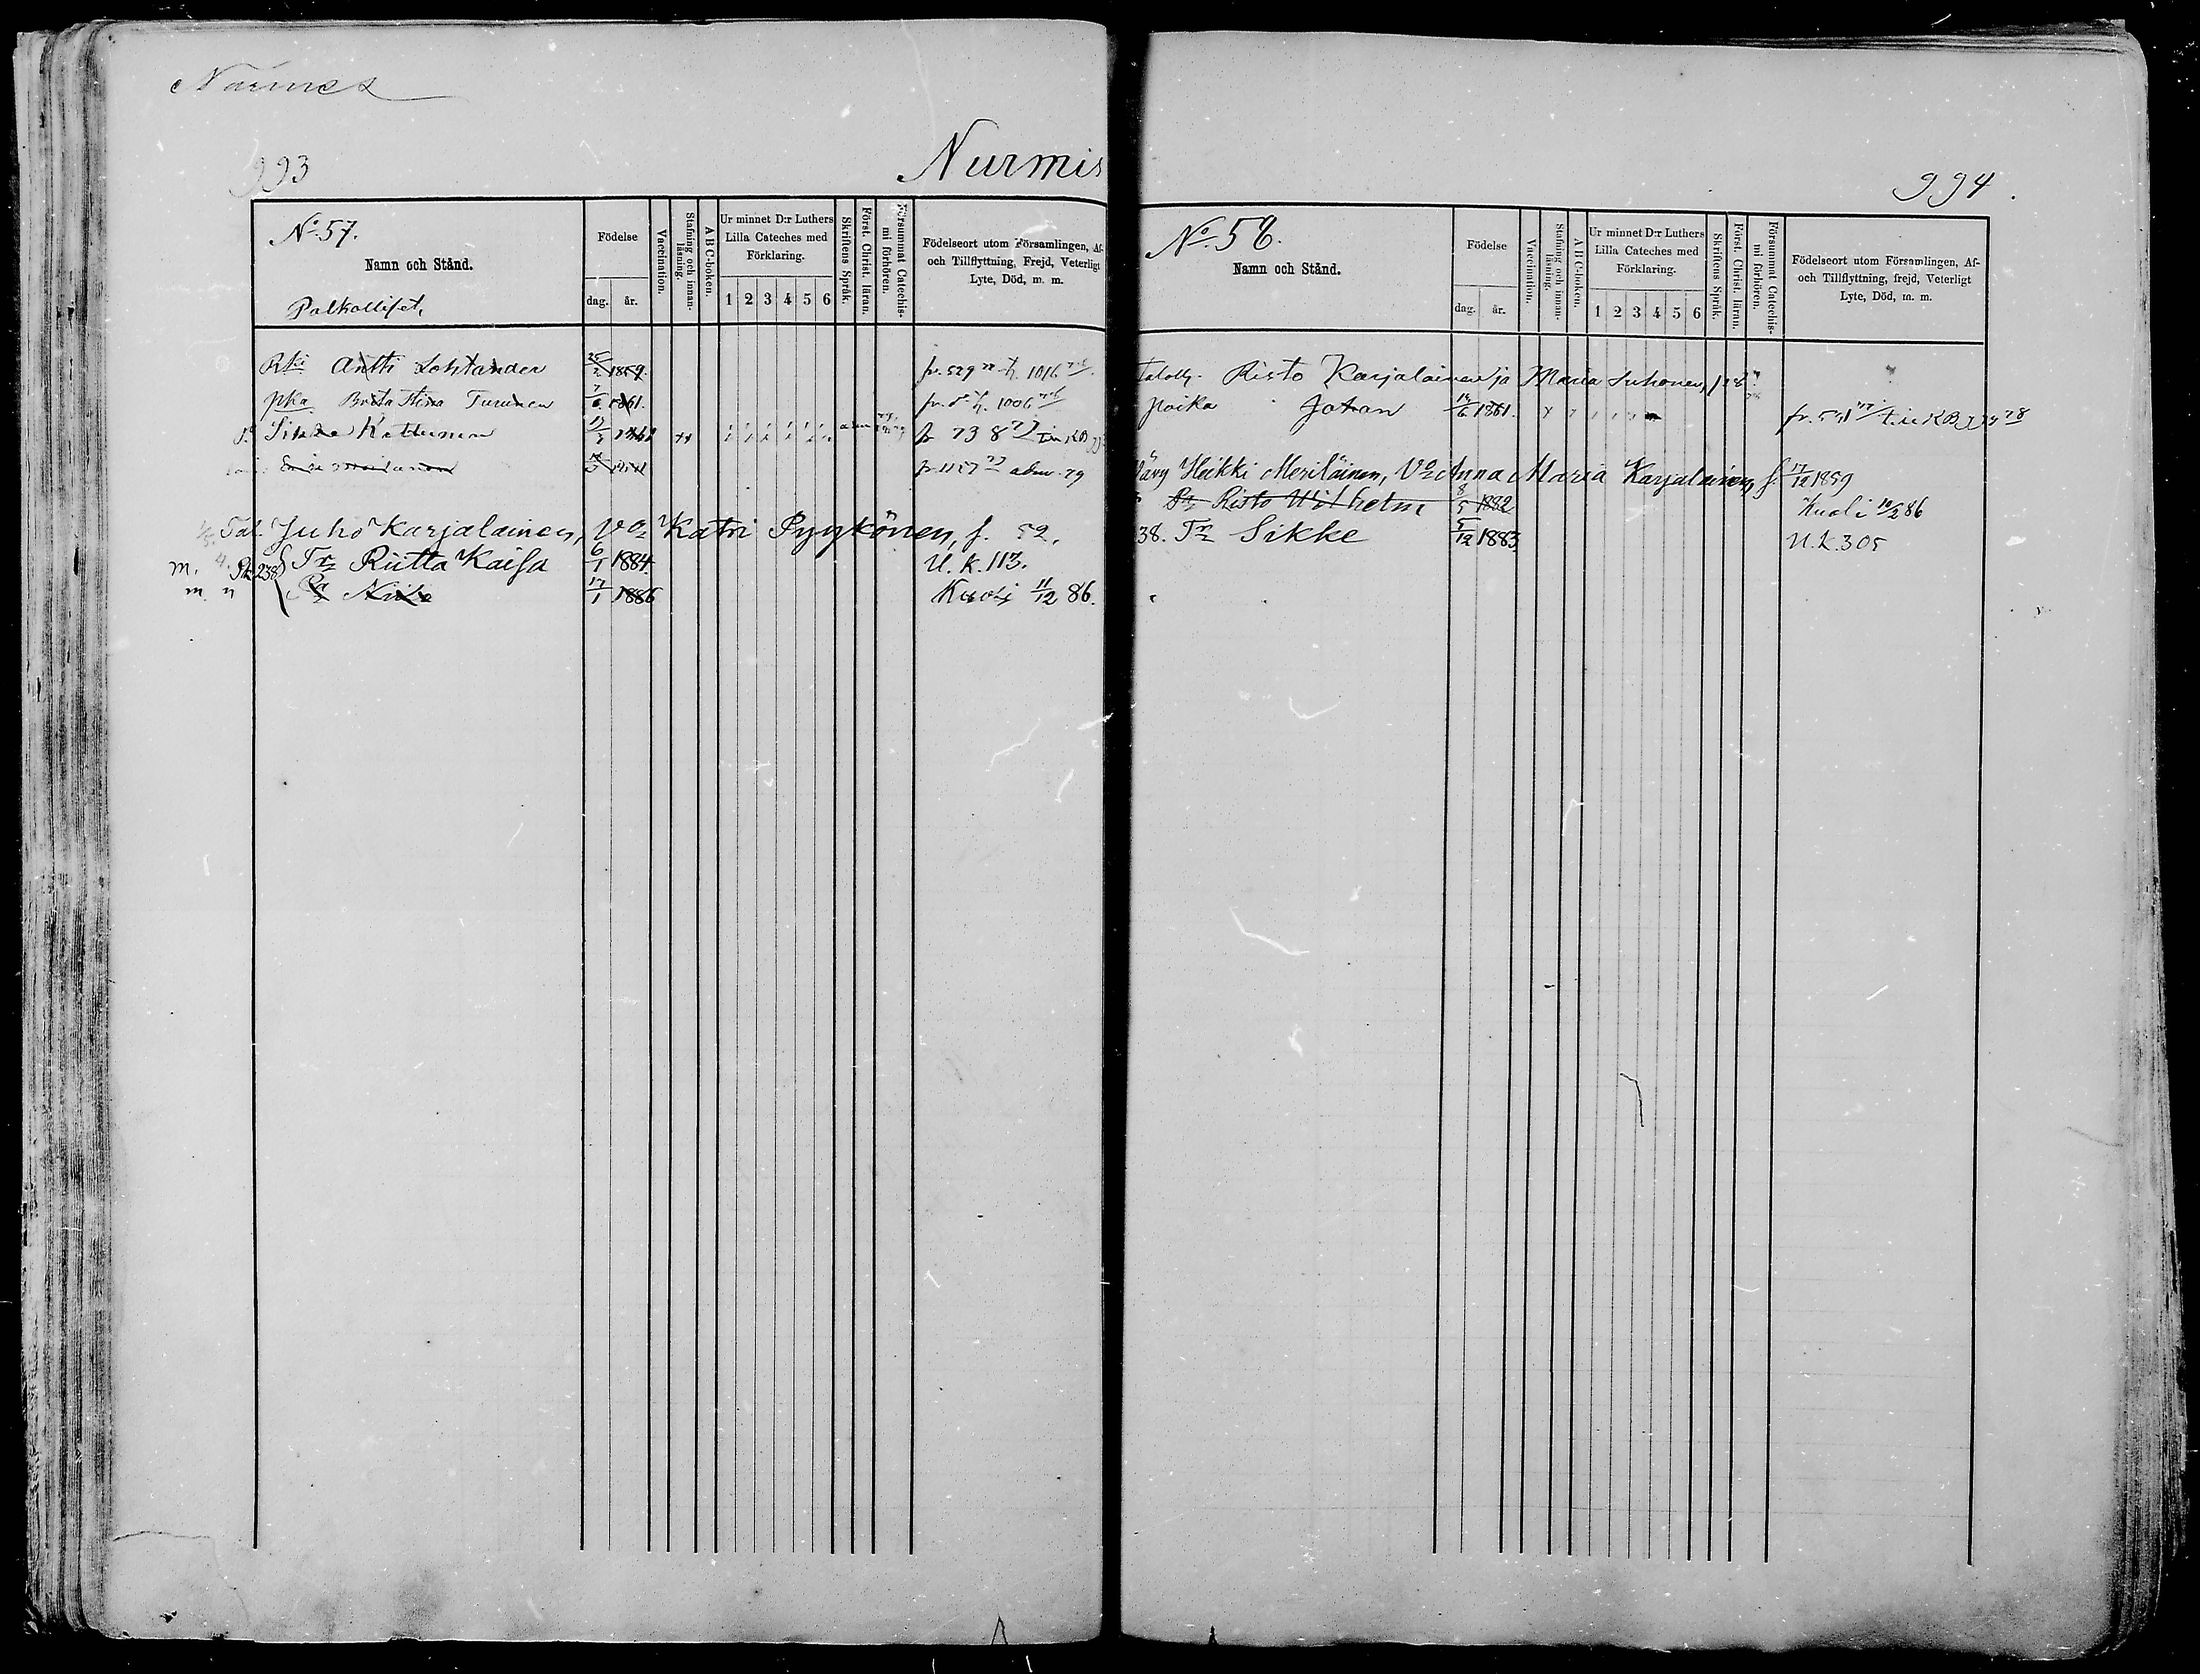 Nurmes
993
Nurmis
No 57.
Namn och Stånd.
Palkolliset,
Födelse
dag. år.
Vaccination.
Stafning och innan-läsning.
A B C-boken.
Ur minnet D:r Luthers
Lilla Cateches med
Förklaring.
1 2 3 4 5 6
Skriftens Språk.
Först. Christ. läran.
Försummat Catechis-mi förhören.
Födelseort utom Församlingen, Af-
och Tillflyttning, Frejd, Veterligt
Lyte, Död, m. m.
Rki Antti Lohtander 25/2 1859. fr. 529 1016
pka Brita Stina Turunen 7/6 1861. fr. 1006
Sikke Kettunen fr 738
fr 1127 adm. 79
Tal. Juho Karjalainen, Vo Katri Pyykönen, f. 52.
m. 238 Tr Riitta Kaisa 6/1 1884. U. k. 113.
m. Pa Niilo 17/1 1886 Kuoli 11/12 86.
994.
No 58.
Namn och Stånd.
Födelse
dag. år.
Vaccination.
Stafning och innan-läsning.
A B C-boken.
Ur minnet D:r Luthers
Lilla Cateches med
Förklaring.
1 2 3 4 5 6
Skriftens Språk.
Först. Christ. läran.
Försummat Catechis-mi förhören.
Födelseort utom Församlingen, Af-
och Tillflyttning, frejd, Veterligt
Lyte, Död, m. m.
Risto Karjalainen ja Maria Suhonen,
poika Johan 1861.
Vävy Heikki Meriläinen, Vo Anna Maria Karjalainen, f. 17/12 1859
Pa Risto Wilhelm 8/5 1882 Kuoli 10/2 86
38. Tr Sikke 5/12 1883 U. k. 305